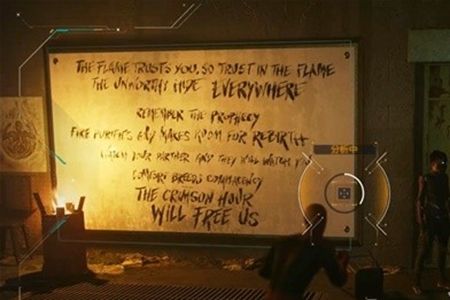 THE FLAME TRUSTS YOU, SO TRUST IN THE FLAME
THE UNWORTHY HIDE EVERYWHERE
REMEMBER THE PROPHECY
FIRE PURIFIES MAKES ROOM FOR REBIRTH
WATCH YOUR BROTHER AND THEY WILL WATCH
COMFORT BREEDS COMPLACENCY
THE CRIMSON HOUR
WILL FREE US
分析中